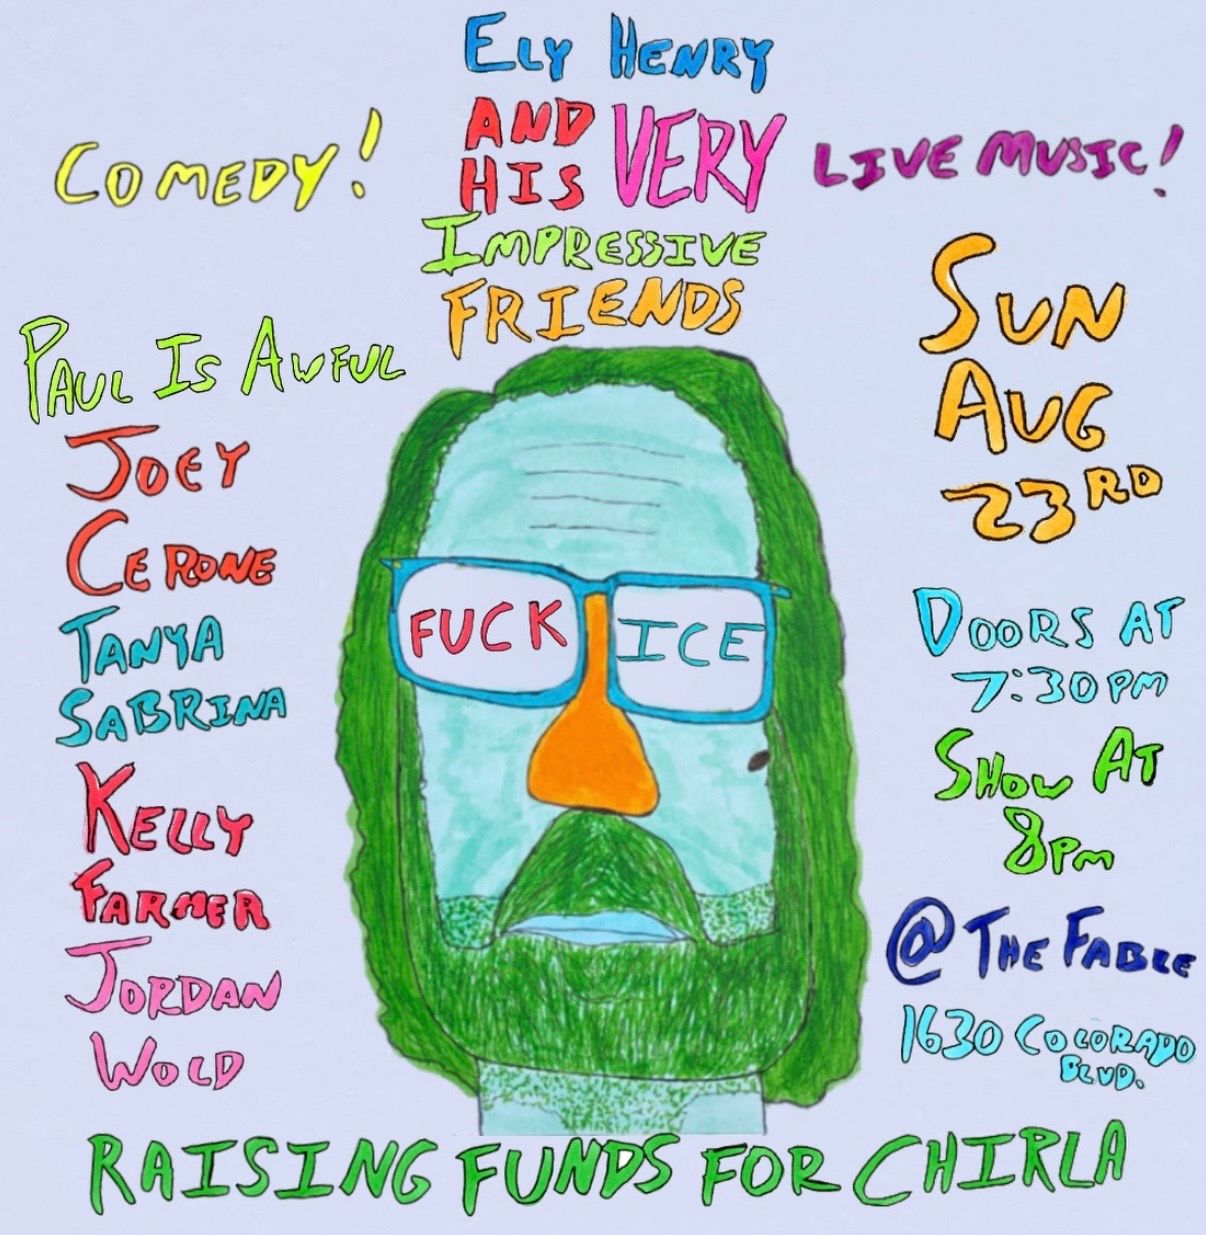 ELY HENRY
AND VERY
HIS
IMPRESSIVE
FRIENDS
COMEDY!
LIVE MUSIC!
PAUL IS AWFUL
JOEY
CERONE
TANYA
SABRINA
KELLY
FARMER
JORDAN
WOLD
FUCK ICE
SUN
AUG
23RD
DOORS AT
7:30PM
SHOW AT
8PM
@ THE FABLE
1630 COLORADO
BLVD.
RAISING FUNDS FOR CHIRLA